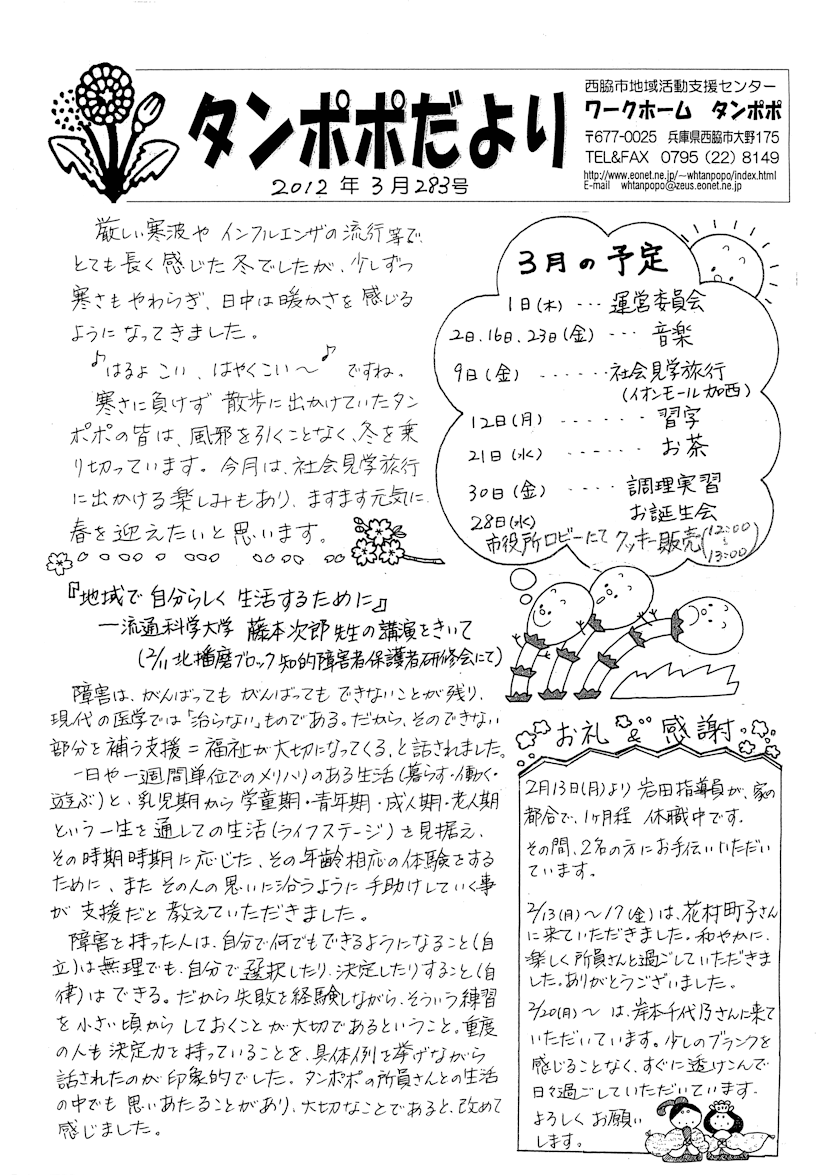 タンポポだより
2012年3月283号
西脇市地域活動支援センター
ワークホーム タンポポ
〒677-0025 兵庫県西脇市大野175
TEL&FAX 0795(22)8149
http://www.eonet.ne.jp/~whtanpopo/index.html
E-mail whtanpopo@zeus.eonet.ne.jp
厳しい寒波や インフルエンザの流行等で、
とても長く感じた冬でしたが、少しずつ
寒さもやわらぎ、日中は暖かさを感じる
ようになってきました。
♪はるよこい、はやくこい～♪ ですね。
寒さに負けず 散歩に出かけていたタン
ポポの皆は、風邪を引くことなく、冬を乗
り切っています。今月は、社会見学旅行
に出かける楽しみもあり、ますます元気に
春を迎えたいと思います。
3月の予定
1日(木) ・・・ 運営委員会
2日.16日.23日(金) ・・・ 音楽
9日(金) ・・・・・・社会見学旅行
(イオンモール加西)
12日(月) ・・・・・・・ 習字
21日(水) ・・・・・・ お茶
30日(金) ・・・・・ 調理実習
お誕生会
28日(水)
市役所ロビーにて クッキー販売(12:00～13:00)
『地域で自分らしく生活するために』
―流通科学大学 藤本次郎先生の講演をきいて
(2/11 北播磨ブロック知的障害者保護者研修会にて)
障害は、がんばっても がんばっても できないことが残り、
現代の医学では「治らない」ものである。だから、そのできない
部分を補う支援=福祉が大切になってくる、と話されました。
一日や一週間単位でのメリハリのある生活(暮らす・働く・
遊ぶ)と、乳児期から学童期・青年期・成人期・老人期
という一生を通しての生活(ライフステージ)を見据え、
その時期時期に応じた、その年齢相応の体験をする
ために、またその人の思いに沿うように手助けしていく事
が支援だと教えていただきました。
障害を持った人は、自分で何でもできるようになること(自
立)は無理でも、自分で選択したり、決定したりすること(自
律)はできる。だから失敗を経験しながら、そういう練習
を小さい頃からしておくことが大切であるということ。重度
の人も決定力を持っていることを、具体例を挙げながら
話されたのが印象的でした。タンポポの所員さんとの生活
の中でも思いあたることがあり、大切なことであると、改めて
感じました。
お礼&感謝
2月13日(月)より岩田指導員が、家の
都合で、1ヶ月程 休職中です。
その間、2名の方にお手伝いいただい
ています。
2/13(月)～17(金)は、花村町子さん
に来ていただきました。和やかに、
楽しく所員さんと過ごしていただきま
した。ありがとうございました。
2/20(月)～ は、岸本千代乃さんに来て
いただいています。少しのブランクを
感じることなく、すぐに透けこんで
日々過ごしていただいています。
よろしくお願い
します。